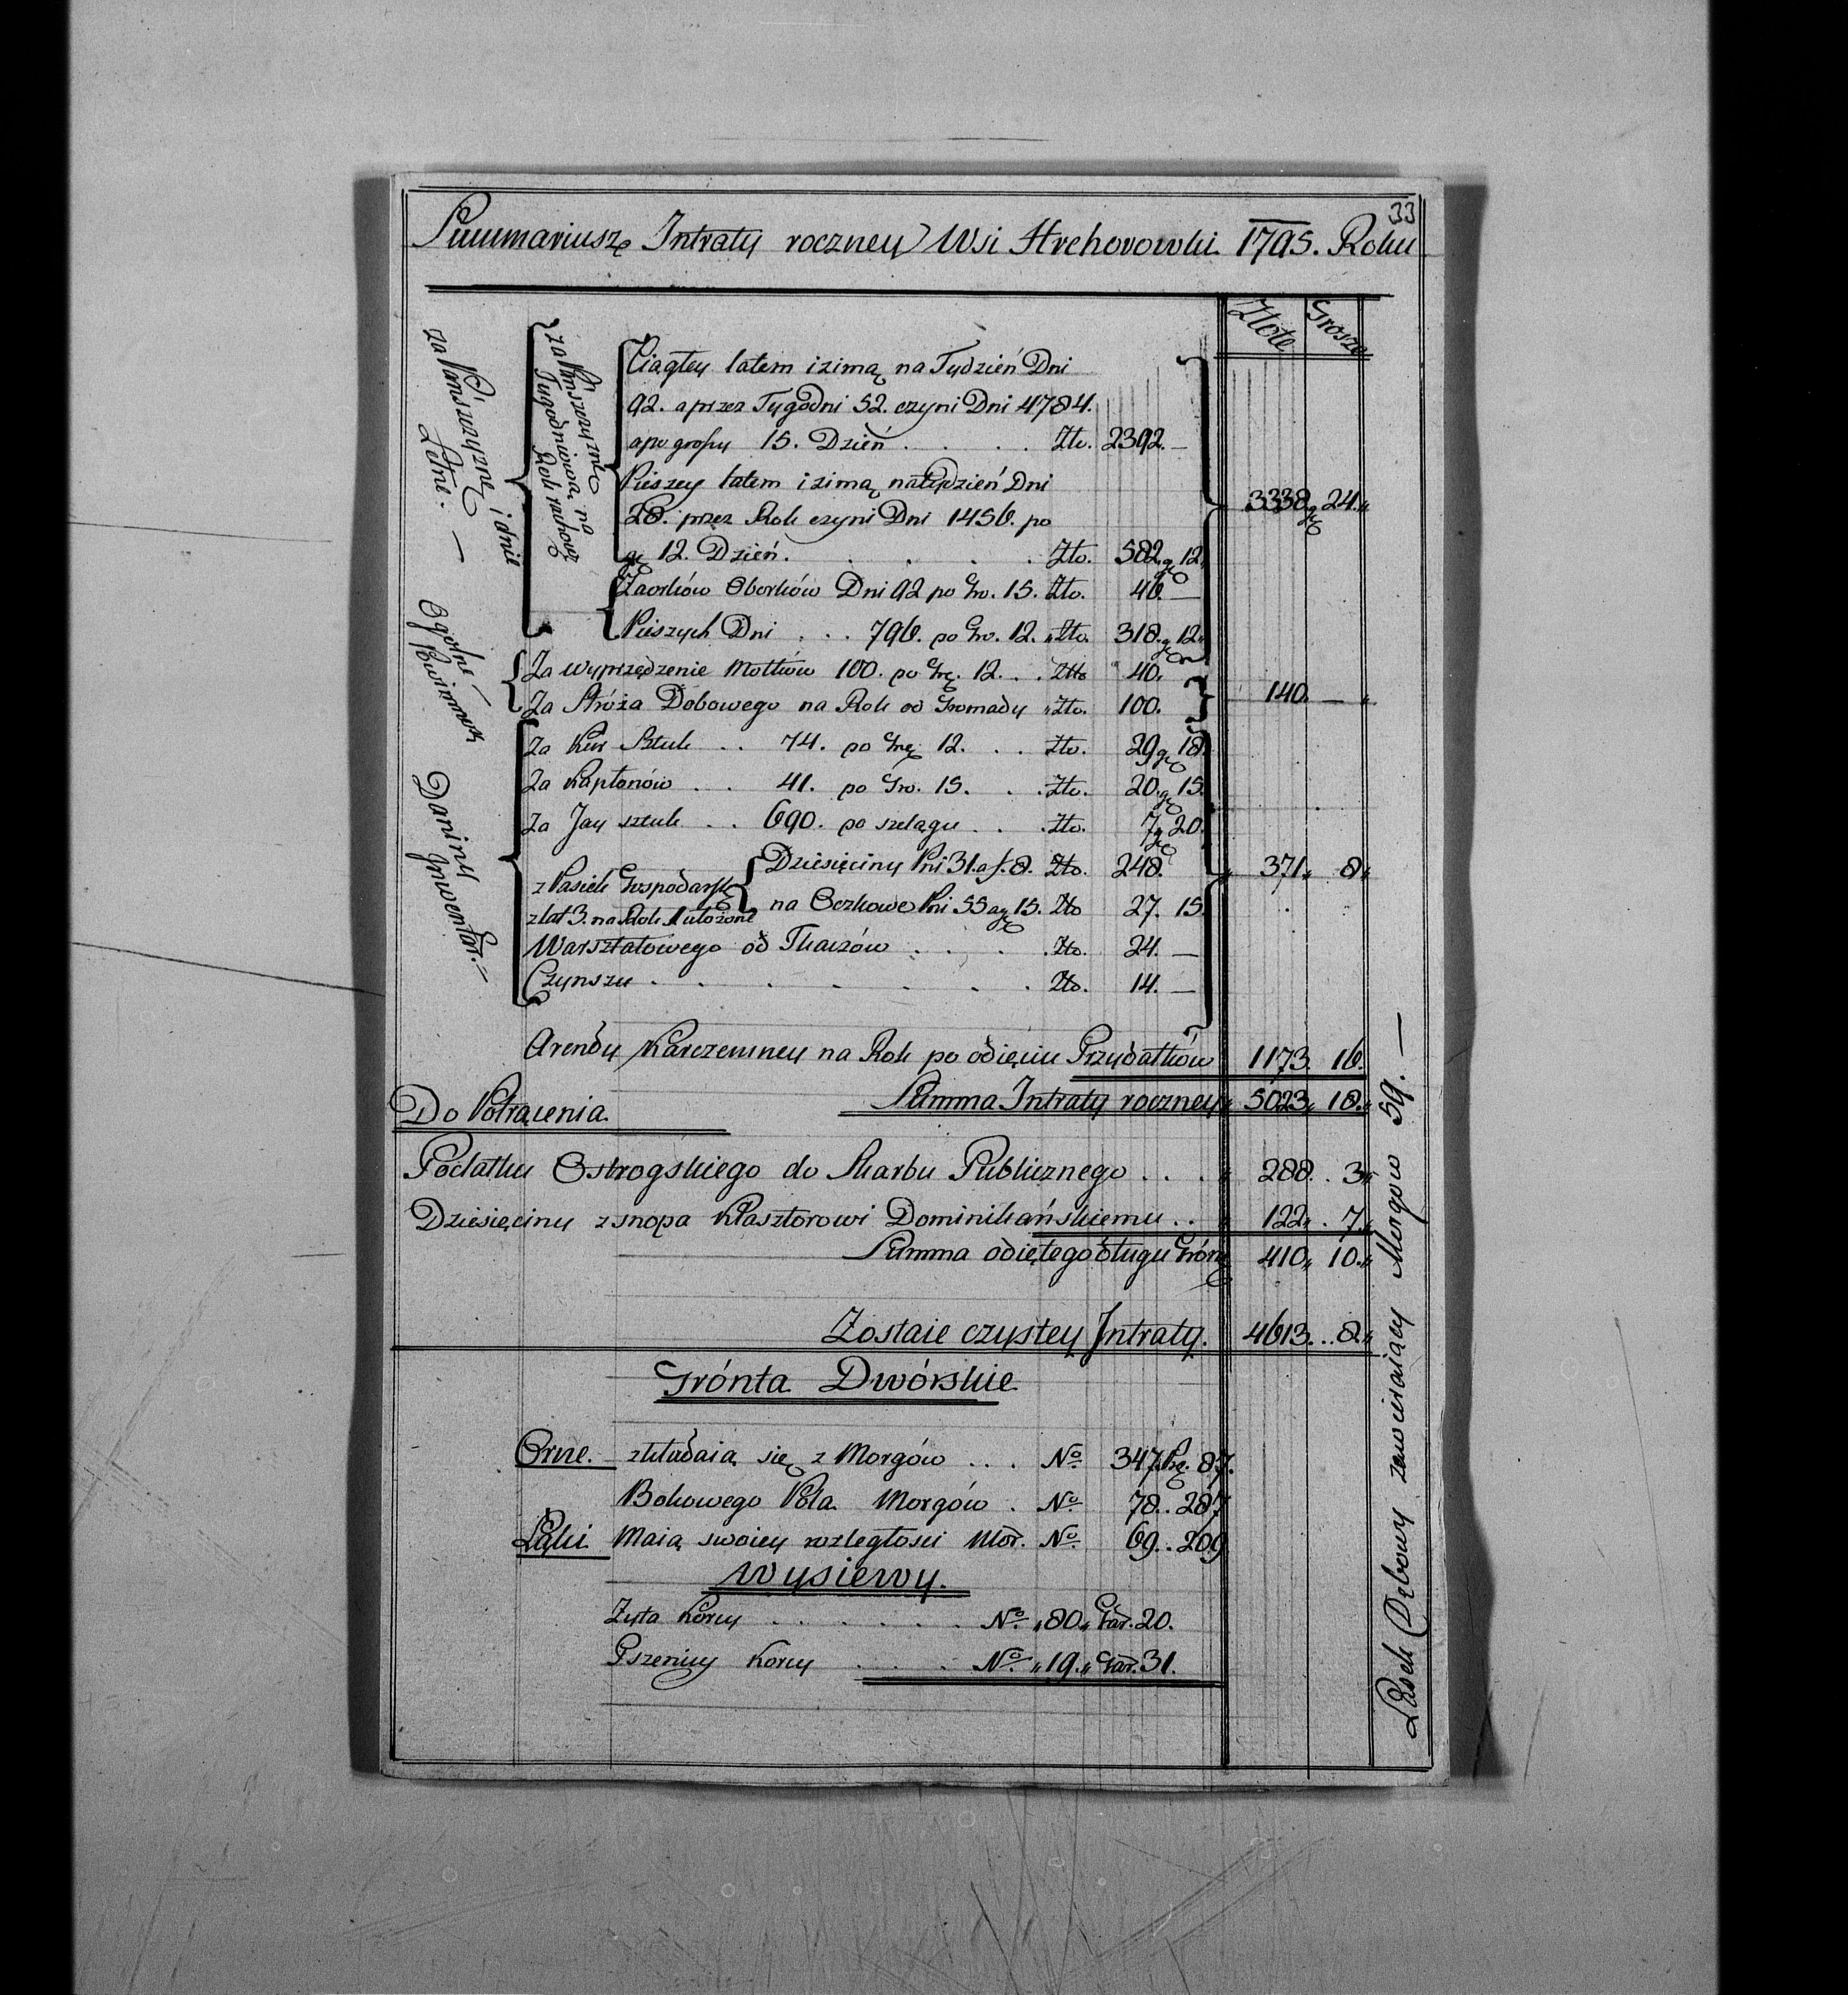 33
Summariusz Intraty roczney Wsi Hrehorowki 1795. Roku
Złote Grosze
za Pańszczyznę i dnie Letnie. —
za Pańszczyznę Tygodniową na Rok rachując
Ciągłey latem i zimą na Tydzień Dni
92. a przez Tygodni 52. czyni Dni 4784.
a po groszy 15. Dzień . . . . Zło. 2392. —
Pieszey latem i zimą na tydzień Dni
28. przez Rok czyni Dni 1456. po
gr 12. Dzień . . . . . Zło. 582 gr 12.
3338 gr 24.
Zaorków Oborków Dni 92 po Gr. 15. Zło. 46. —
Pieszych Dni . . . 796. po Gr. 12. Zło. 318. gr 12.
Ogólne Powinności
Za wyprzędzenie Motków 100. po Gr. 12. . . Zło 40.
Za Stróża Dobowego na Rok od Gromady Zło. 100.
140. —
Daniny Inwentar. —
Za Kur Sztuk . . 74. po Gr 12. . . Zło. 29 gr 18.
Za Kapłonów . . . 41. po Gr. 15. . . Zło. 20. gr 15.
Za Jay sztuk . . 690. po szelągu . . . Zło. 7 gr 20.
z Pasiek Gospodarsk
z lat 3. na Rok 1 ułożone
Dziesięciny Pni 31. a f. 8. Zło. 248.
na Oczkowe Pni 55 a gr 15. Zło 27. 15.
371. 8.
Warsztatowego od Tkaczów . . . . Zło. 24. —
Czynszu . . . . . . . . Zło. 14. —
Arendy Karczemney na Rok po odięciu Przydatków 1173. 16.
Summa Intraty roczney 5023. 18.
Do Potrącenia
Podatku Ostrogskiego do Skarbu Publicznego . . . 288. . 3.
Dziesięciny z snopa Klasztorowi Dominikańskiemu . . 122. . 7.
Summa odiętego długu 410. 10.
Zostaie czystey Intraty. 4613. . . 8.
Grónta Dwórskie
Orne. składaią się z Morgów . . . No. 347. Prę. 87.
Bokowego Pola Morgów . No. 78. . 287
Łąki Maią swoiey rozległości Mor. No. 69. . 209
Wysiewy.
Żyta Korcy . . . . . . . No. 80. Gar. 20.
Pszenicy Korcy . . . . No. 19. Gar. 31.
Lasek Dębowy zawieraiący Morgów 59. —